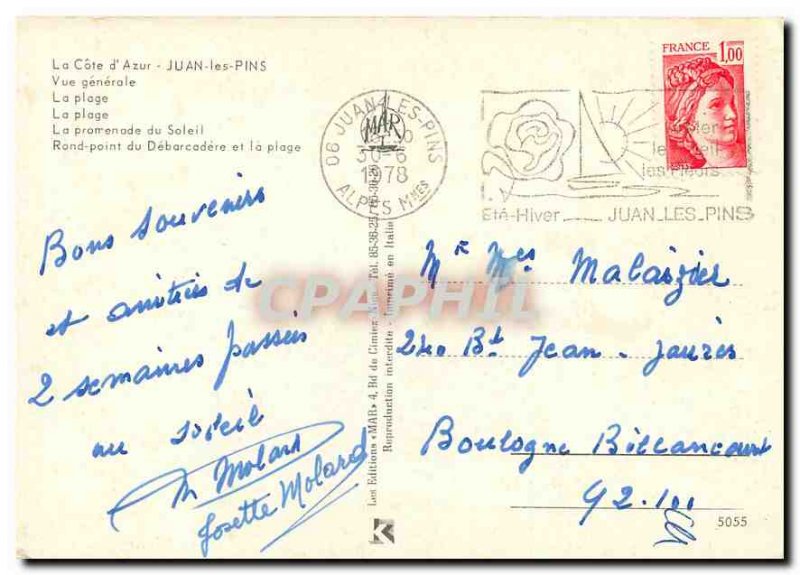 La Côte d'Azur - JUAN-les-PINS
Vue générale
La plage
La plage
La promenade du Soleil
Rond-point du Débarcadére et la plage
Bons souvenirs
et amitiés de
2 semaines passées
au soleil
M Molard
Josette Molard
Les Editions «MAR» 4, Bd du Cimiez Nice Tél.
Reproduction interdite - Imprimé en Italie
MAR
06 JUAN-LES-PINS
30-6
1978
ALPES Mmes
la Mer
le Soleil
les Fleurs
Eté-Hiver JUAN_LES_PINS
FRANCE 1,00
CPAPHIL
Mr Mes Malaizier
240 Bd Jean-Jaurès
Boulogne Billancourt
92.100
K
5055